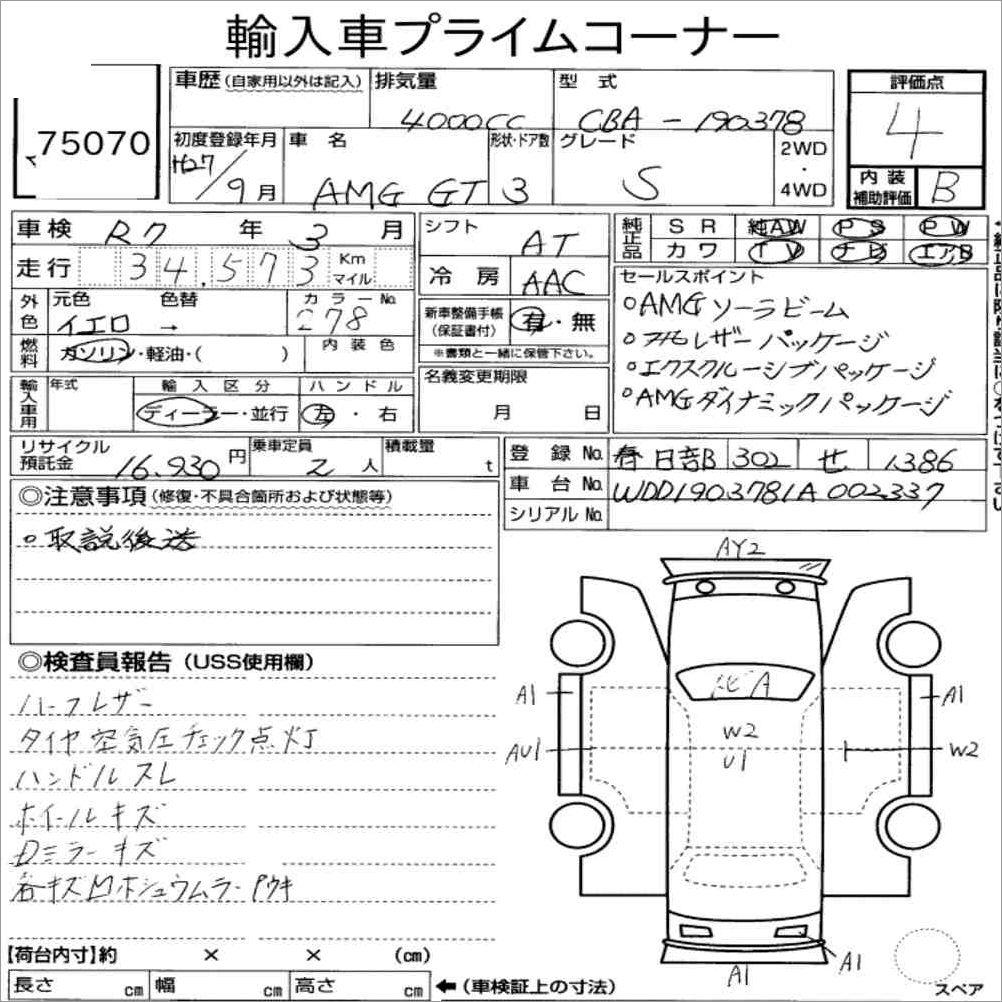 輸入車プライムコーナー
75070
車歴(自家用以外は記入) 排気量 4000cc 型式 CBA-190378
評価点 4
初度登録年月 H27/9月 車名 AMG GT 形状・ドア数 3 グレード S 2WD・4WD
内装補助評価 B
車検 R7年3月
走行 34,573 Km マイル
シフト AT
冷房 AAC
純正品 SR 純AW PS PW
カワ TV ナビ エアB
外色 元色 イエロ 色替 → カラーNo. 278
燃料 ガソリン・軽油・( ) 内装色
新車整備手帳(保証書付) 有・無
※書類と一緒に保管下さい。
セールスポイント
○AMGソーラビーム
レザーパッケージ
○エクスクルーシブパッケージ
○AMGダイナミックパッケージ
輸入車用 年式 輸入区分 ディーラー・並行 ハンドル 左・右
名義変更期限 月 日
リサイクル預託金 16.930円 乗車定員 2人 積載量 t
登録No. 春日部 302 せ 1386
車台No. WDD1903781A002337
シリアルNo.
◎注意事項(修復・不具合箇所および状態等)
○取説後送
◎検査員報告(USS使用欄)
ハーフレザー
タイヤ空気圧チェック点灯
ハンドルスレ
ホイールキズ
Dミラーキズ
各キズ
AY2
A1
AU1
飛A
W2
U1
A1
W2
A1
A1
スペア
【荷台内寸】約 × × (cm)
長さ cm 幅 cm 高さ cm ←(車検証上の寸法)